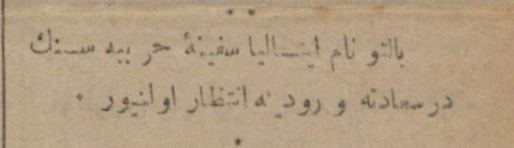 بالتو نام ایتالیا سفینۀ حربیه سـنك
درسعادته ورودینه انتظار اولنیور .